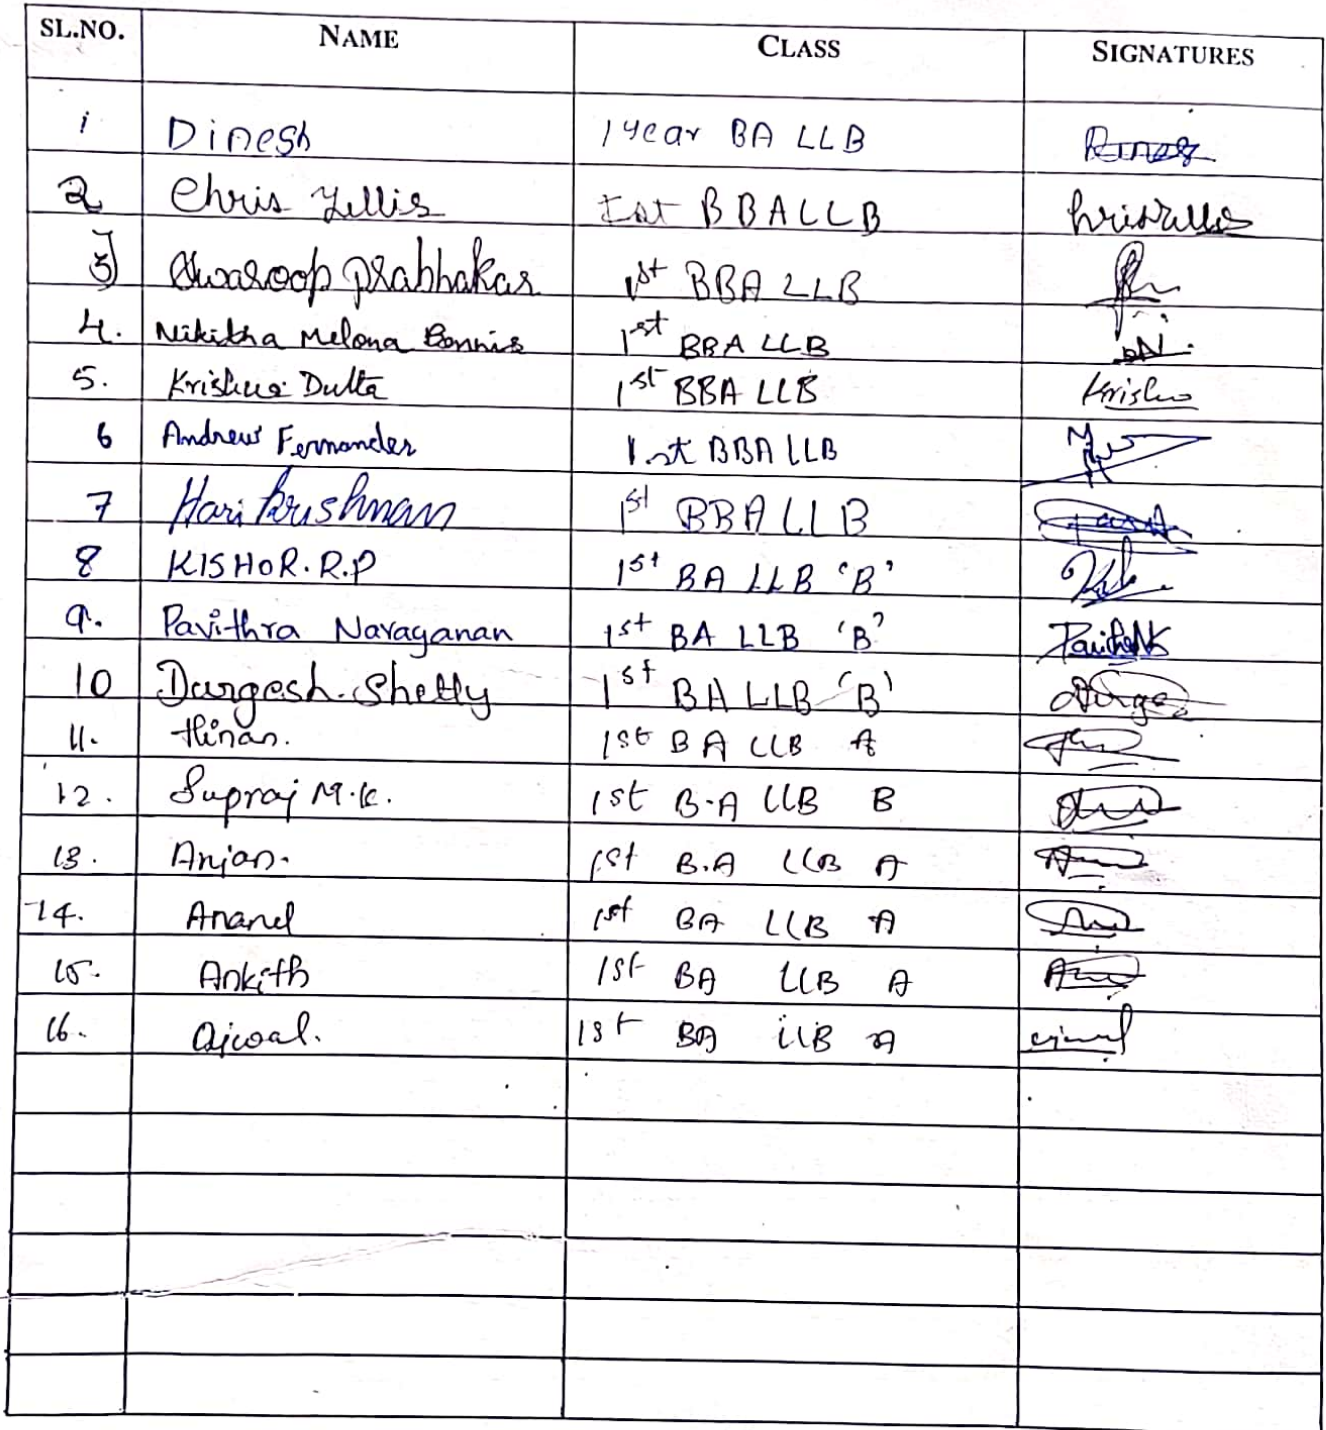 SL.NO. NAME CLASS SIGNATURES
1 Dinesh 1 year BA LLB
2 Chris Yellis Ist BBALLB
3) Swaroop Prabhakar 1st BBA LLB
4. Nikitha Melona Bonnis 1st BBA LLB
5. Krishna Dutta 1st BBA LLB Krishna
6 Andrew Fernandes 1st BBA LLB
7 Hari Krushnan 1st BBA LLB
8 KISHOR.R.P 1st BA LLB 'B'
9. Pavithra Narayanan 1st BA LLB 'B'
10 Durgesh. Shetty 1st BA LLB 'B'
11. 1st BA LLB A
12. Supraj M.K. 1st B.A LLB B
13. Anjan. 1st B.A LLB A
14. Anand 1st BA LLB A
15. Ankith 1st BA LLB A
16. Ajwal. 1st BA LLB A